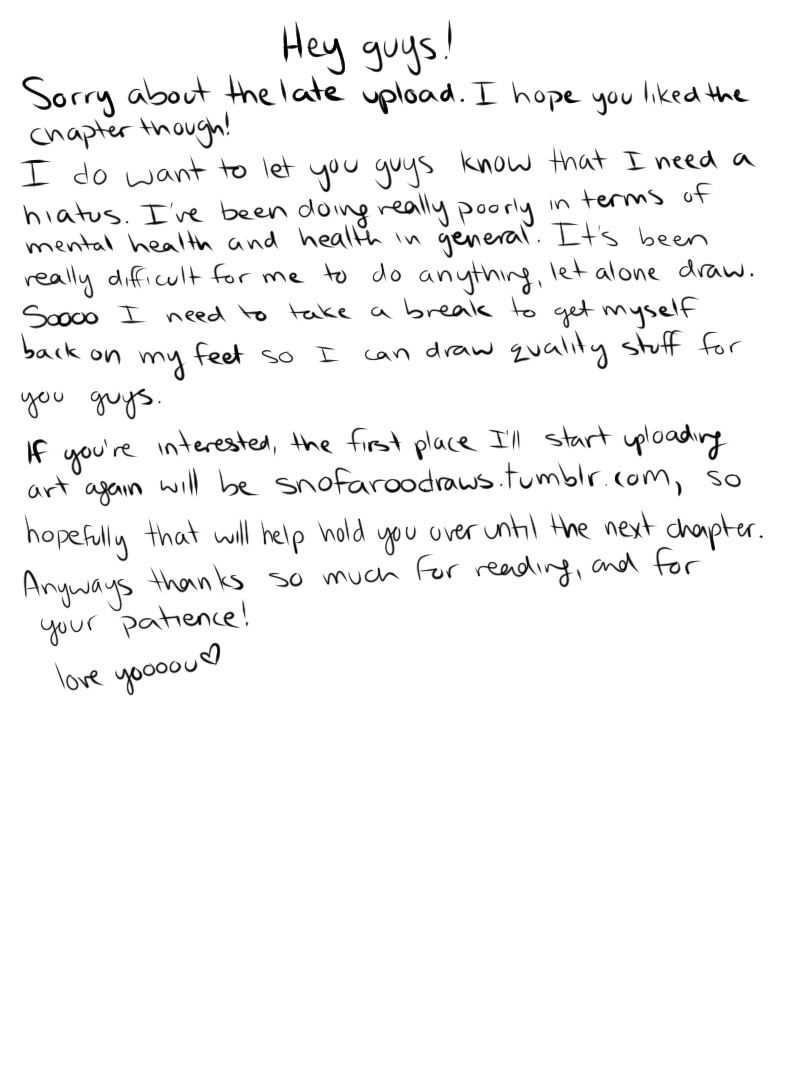 Hey guys!
Sorry about the late upload. I hope you liked the
chapter though!
I do want to let you guys know that I need a
hiatus. I've been doing really poorly in terms of
mental health and health in general. It's been
really difficult for me to do anything, let alone draw.
Soooo I need to take a break to get myself
back on my feet so I can draw quality stuff for
you guys.
If you're interested, the first place I'll start uploading
art again will be snofaroodraws.tumblr.com, so
hopefully that will help hold you over until the next chapter.
Anyways thanks so much for reading, and for
your patience!
love yoooou♡